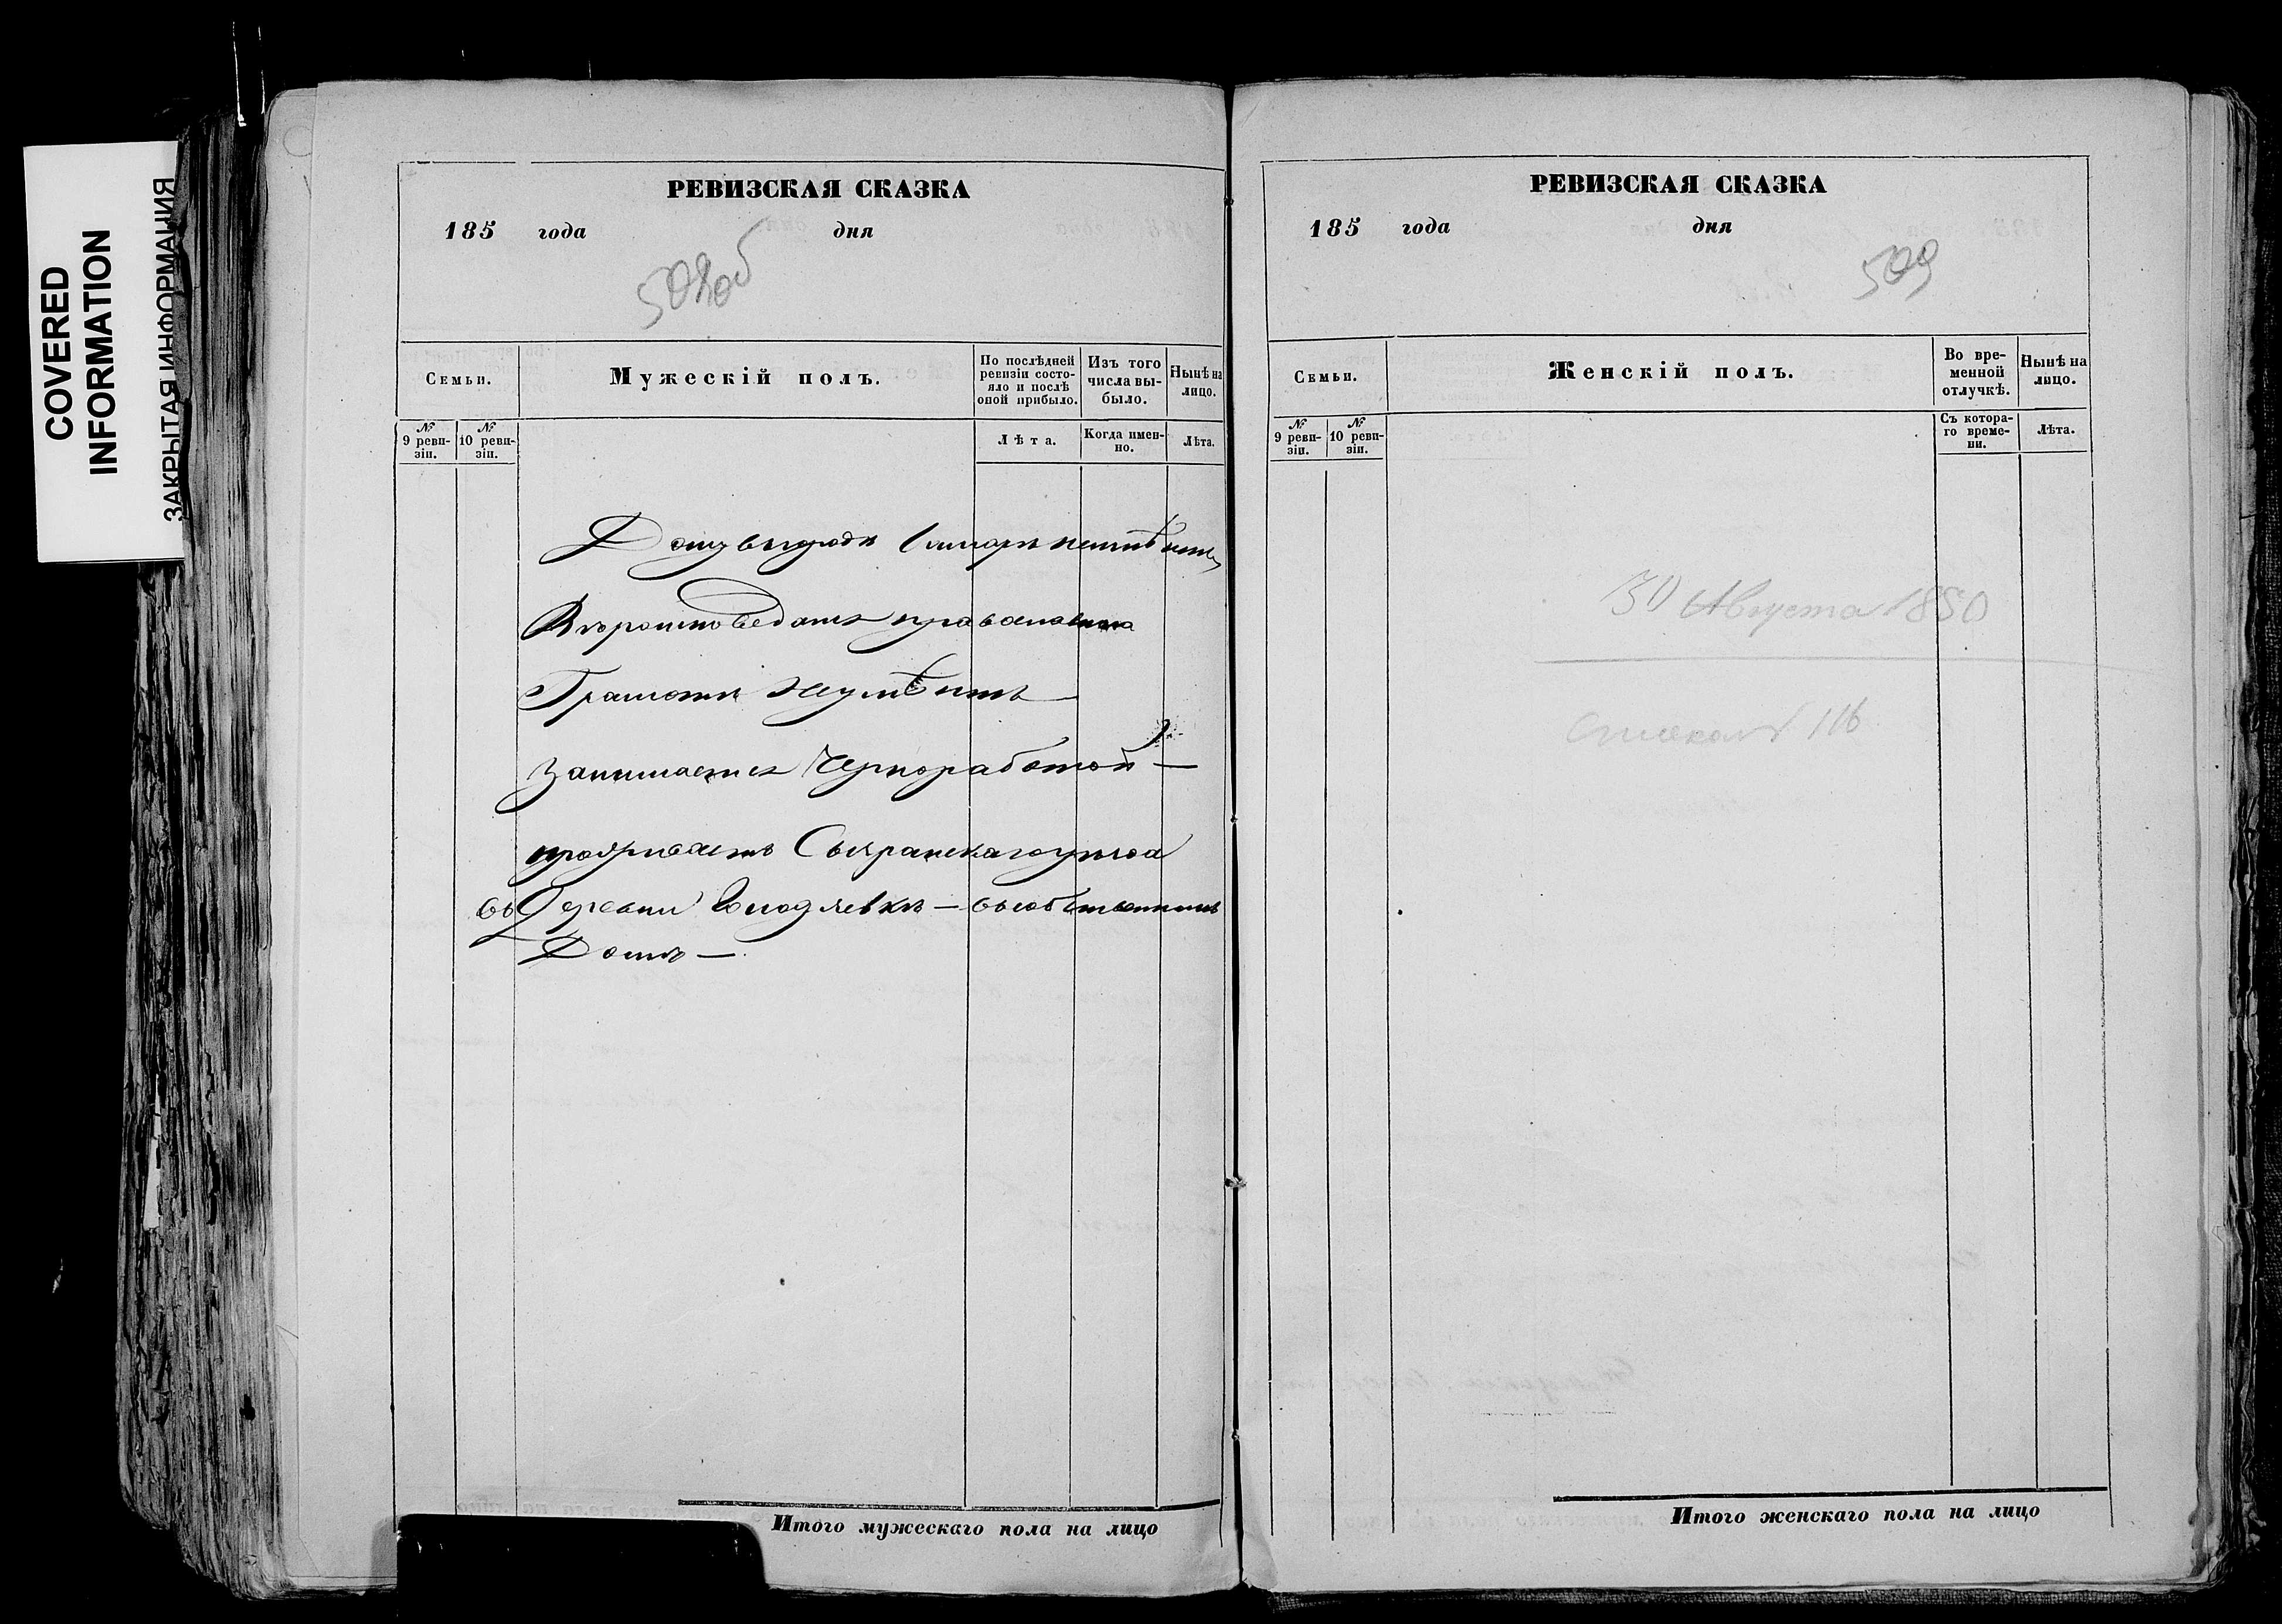 COVERED
INFORMATION
ЗАКРЫТАЯ ИНФОРМАЦИЯ
РЕВИЗСКАЯ СКАЗКА
185 года дня
508об
Семьи.
Мужескій полъ.
По послѣдней ревизіи состояло и послѣ оной прибыло.
Изъ того числа выбыло.
Нынѣ на лицо.
№ 9 ревизіи.
№ 10 ревизіи.
Лѣта.
Когда именно.
Лѣта.
Дому въ городѣ Самарѣ неимѣитъ
Вѣроисповеданія православнаго
Грамотѣ неумѣитъ
Занимается Черноработой —
проживаетъ Сызранскаго уѣзда
въ Деревни — въ собственномъ
Домѣ —
Итого мужескаго пола на лицо
РЕВИЗСКАЯ СКАЗКА
185 года дня
509
Семьи.
Женскій полъ.
Во временной отлучкѣ.
Нынѣ на лицо.
№ 9 ревизіи.
№ 10 ревизіи.
Съ котораго времени.
Лѣта.
30 Августа 1850
116
Итого женскаго пола на лицо